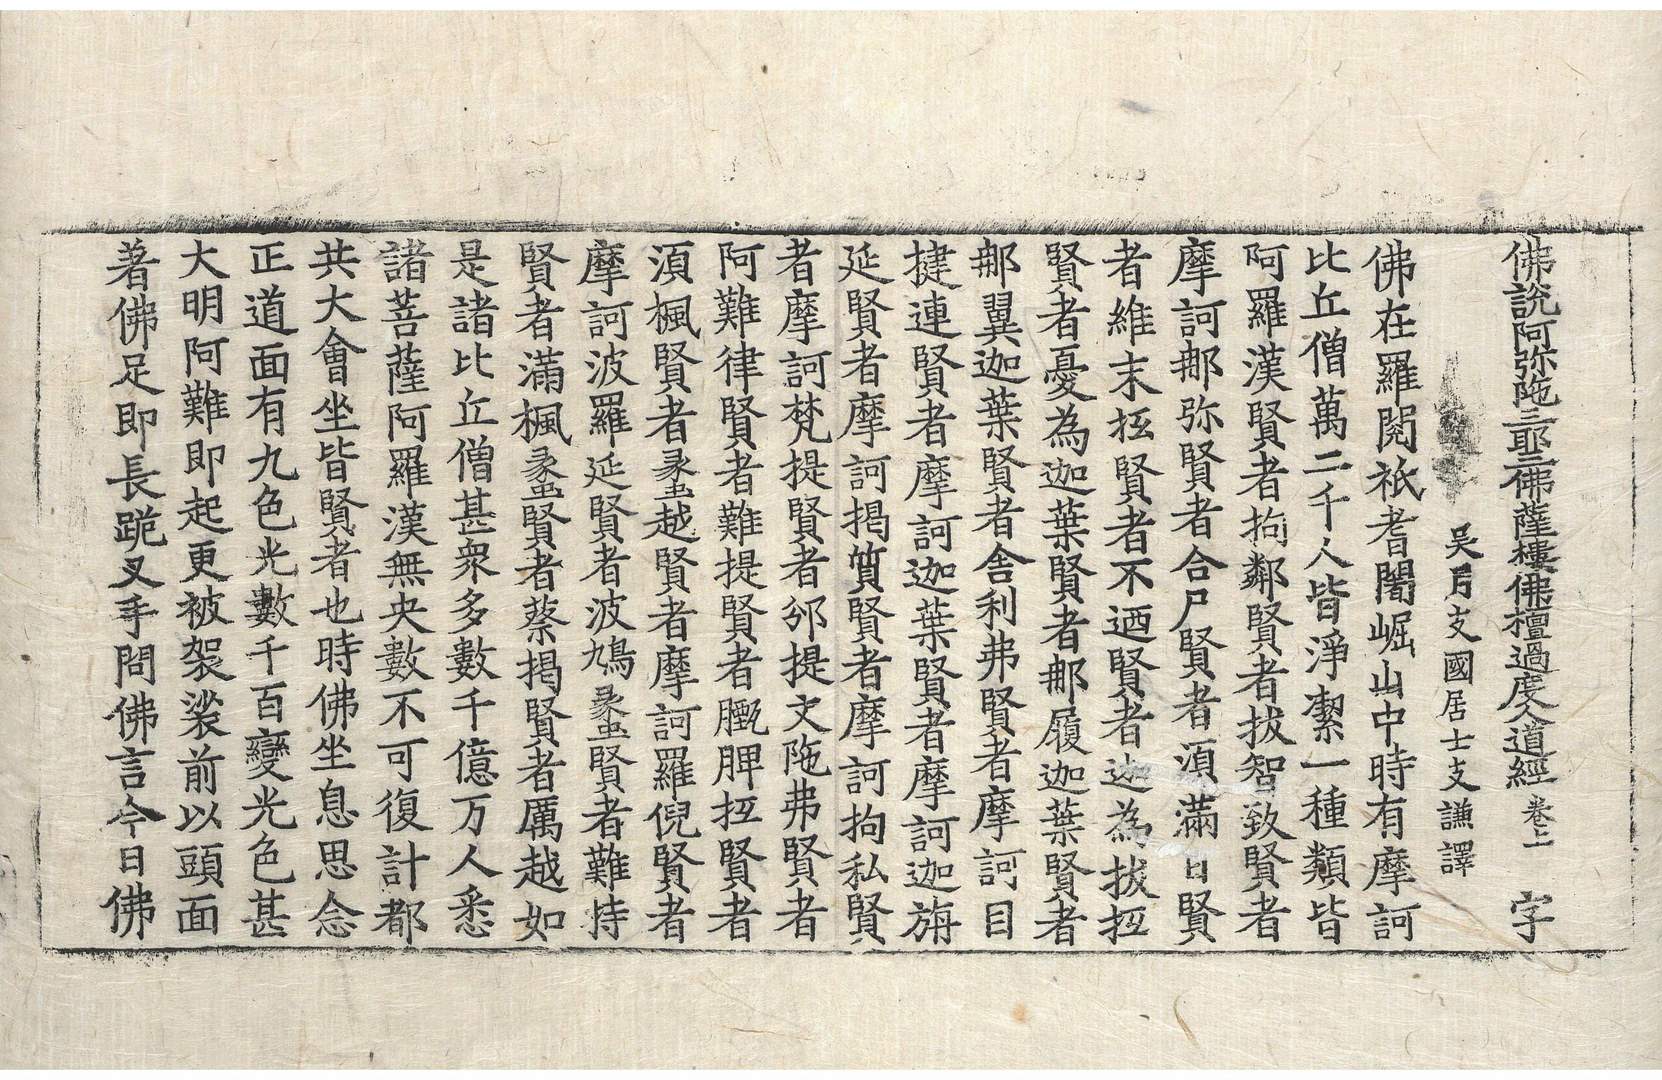 佛說阿弥陁三耶三佛薩樓佛檀過度人道經卷上　字
吳月支國居士支謙譯
佛在羅閱祇耆闍崛山中時有摩訶
比丘僧萬二千人皆淨潔一種類皆
阿羅漢賢者拘鄰賢者拔智致賢者
摩訶那弥賢者合尸賢者須滿日賢
者維末抵賢者不迺賢者迦為拔抵
賢者憂為迦葉賢者那履迦葉賢者
那翼迦葉賢者舍利弗賢者摩訶目
揵連賢者摩訶迦葉賢者摩訶迦旃
延賢者摩訶揭質賢者摩訶拘私賢
者摩訶梵提賢者邠提文陁弗賢者
阿難律賢者難提賢者䏙脾抵賢者
須楓賢者蠡越賢者摩訶羅倪賢者
摩訶波羅延賢者波鳩蠡賢者難持
賢者滿楓蠡賢者蔡揭賢者厲越如
是諸比丘僧甚衆多數千億万人悉
諸菩薩阿羅漢無央數不可復計都
共大會坐皆賢者也時佛坐息思念
正道面有九色光數千百變光色甚
大明阿難即起更被袈裟前以頭面
著佛足即長跪叉手問佛言今日佛